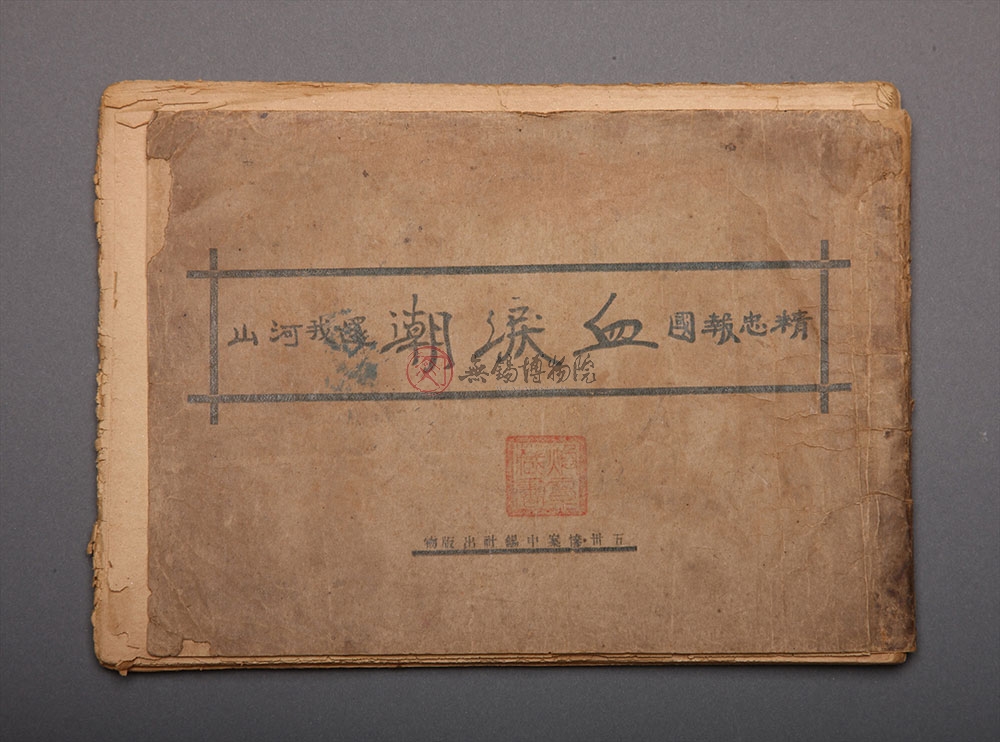 精忠報國 血淚潮 還我河山
無錫博物院
五卅慘案中錫社出版物